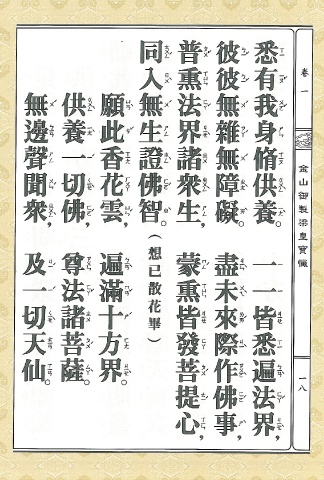 卷一
金山御製梁皇寶懺
一八
悉有我身脩供養。一一皆悉遍法界,
彼彼無雜無障礙。盡未來際作佛事,
普熏法界諸眾生,蒙熏皆發菩提心,
同入無生證佛智。(想已散花畢)
願此香花雲,遍滿十方界。
供養一切佛,尊法諸菩薩。
無邊聲聞衆,及一切天仙。